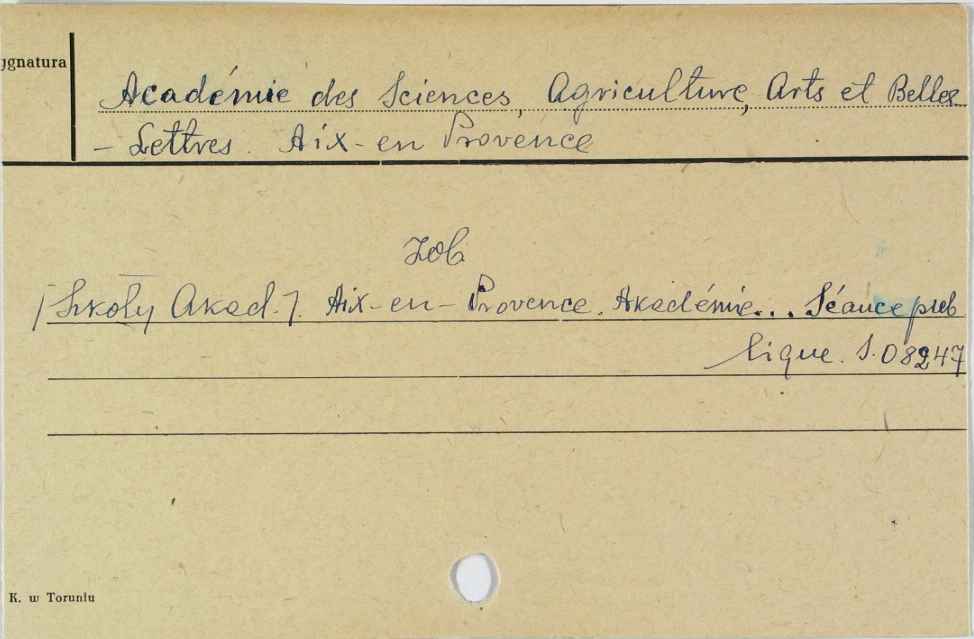 ygnatura
Académie des Sciences, Agriculture, Arts et Belles
- Lettres. Aix-en Provence
Zob
[Szkoły Akad.]. Aix-en-Provence. Akadémie... Séance pub
lique. S.08247
K. w Toruniu